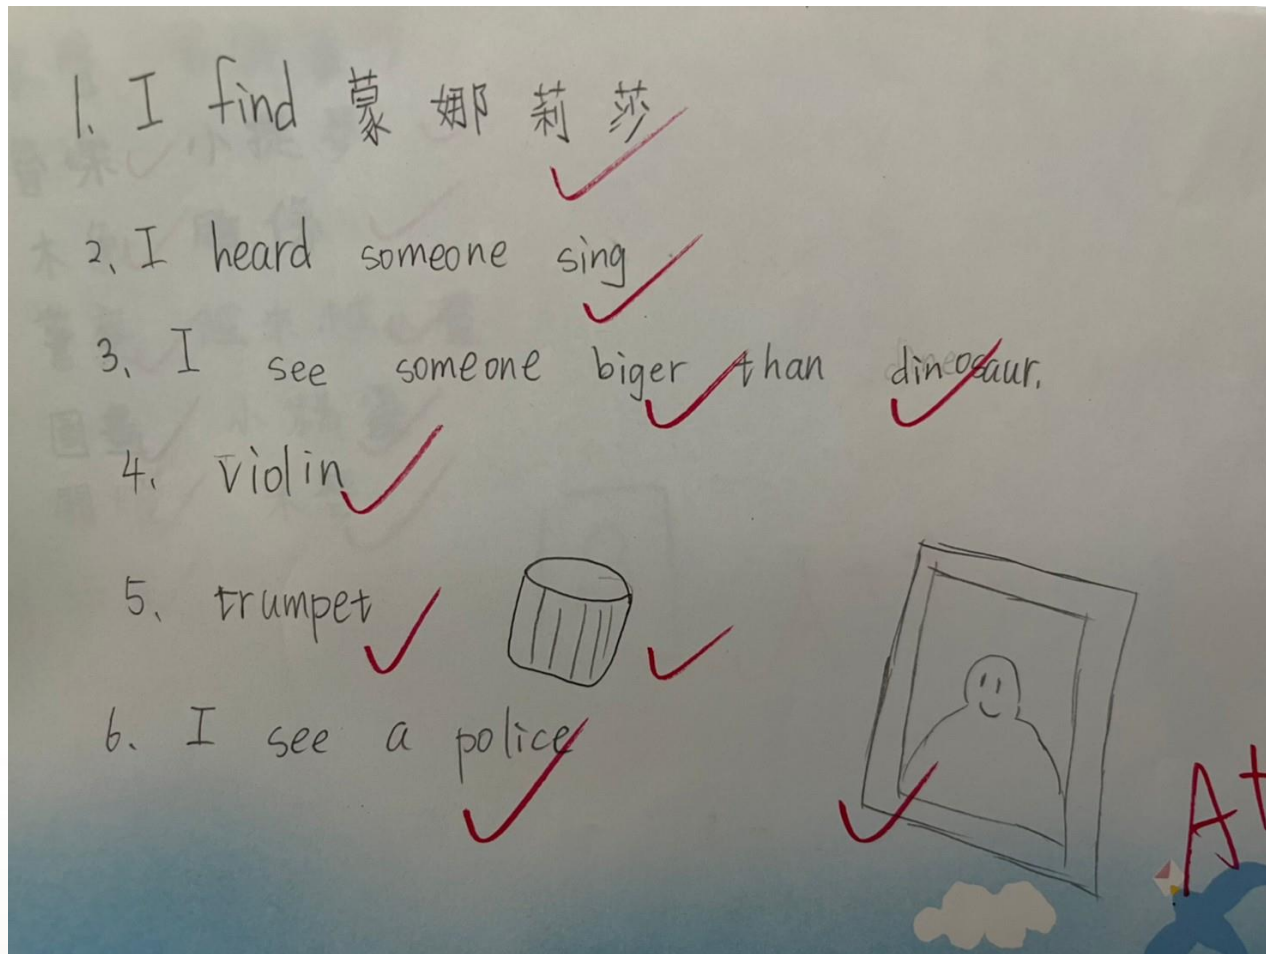 1、I find 蒙娜莉莎
2、I heard someone sing
3、I see someone biger than dinosaur.
4、violin
5、trumpet
6、I see a police
A+